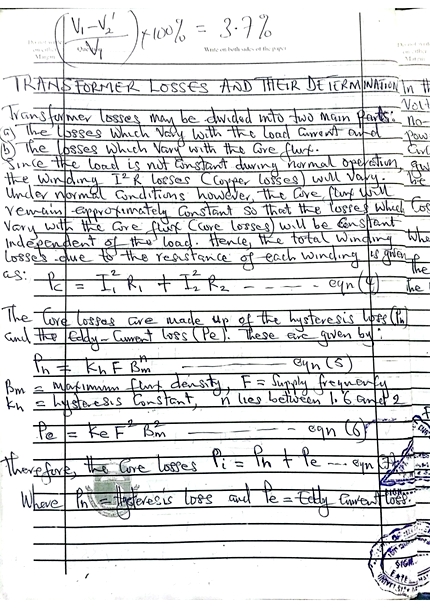 (V₁ - V₂' / V₁) × 100% = 3.7%
Write on both sides of the paper
TRANSFORMER LOSSES AND THEIR DETERMINATION
Transformer losses may be divided into two main parts:
(a) The losses which vary with the load current and
(b) The losses which vary with the core flux.
Since the load is not constant during normal operation,
the winding I²R losses (copper losses) will vary.
Under normal conditions however, the core flux will
remain approximately constant so that the losses which
vary with the core flux (core losses) will be constant
independent of the load. Hence, the total winding
losses due to the resistance of each winding is given
as:
Pc = I₁² R₁ + I₂² R₂ ------ eqn (4)
The core losses are made up of the hysteresis loss (Ph)
and the eddy-current loss (Pe). These are given by:
Ph = Kh F Bmⁿ ------ eqn (5)
Bm = maximum flux density, F = supply frequency
Kh = hysteresis constant, n lies between 1.6 and 2
Pe = Ke F² Bm² ------ eqn (6)
Therefore, the core losses Pi = Ph + Pe --- eqn
Where Ph = Hysteresis loss and Pe = Eddy current loss.
SIGN